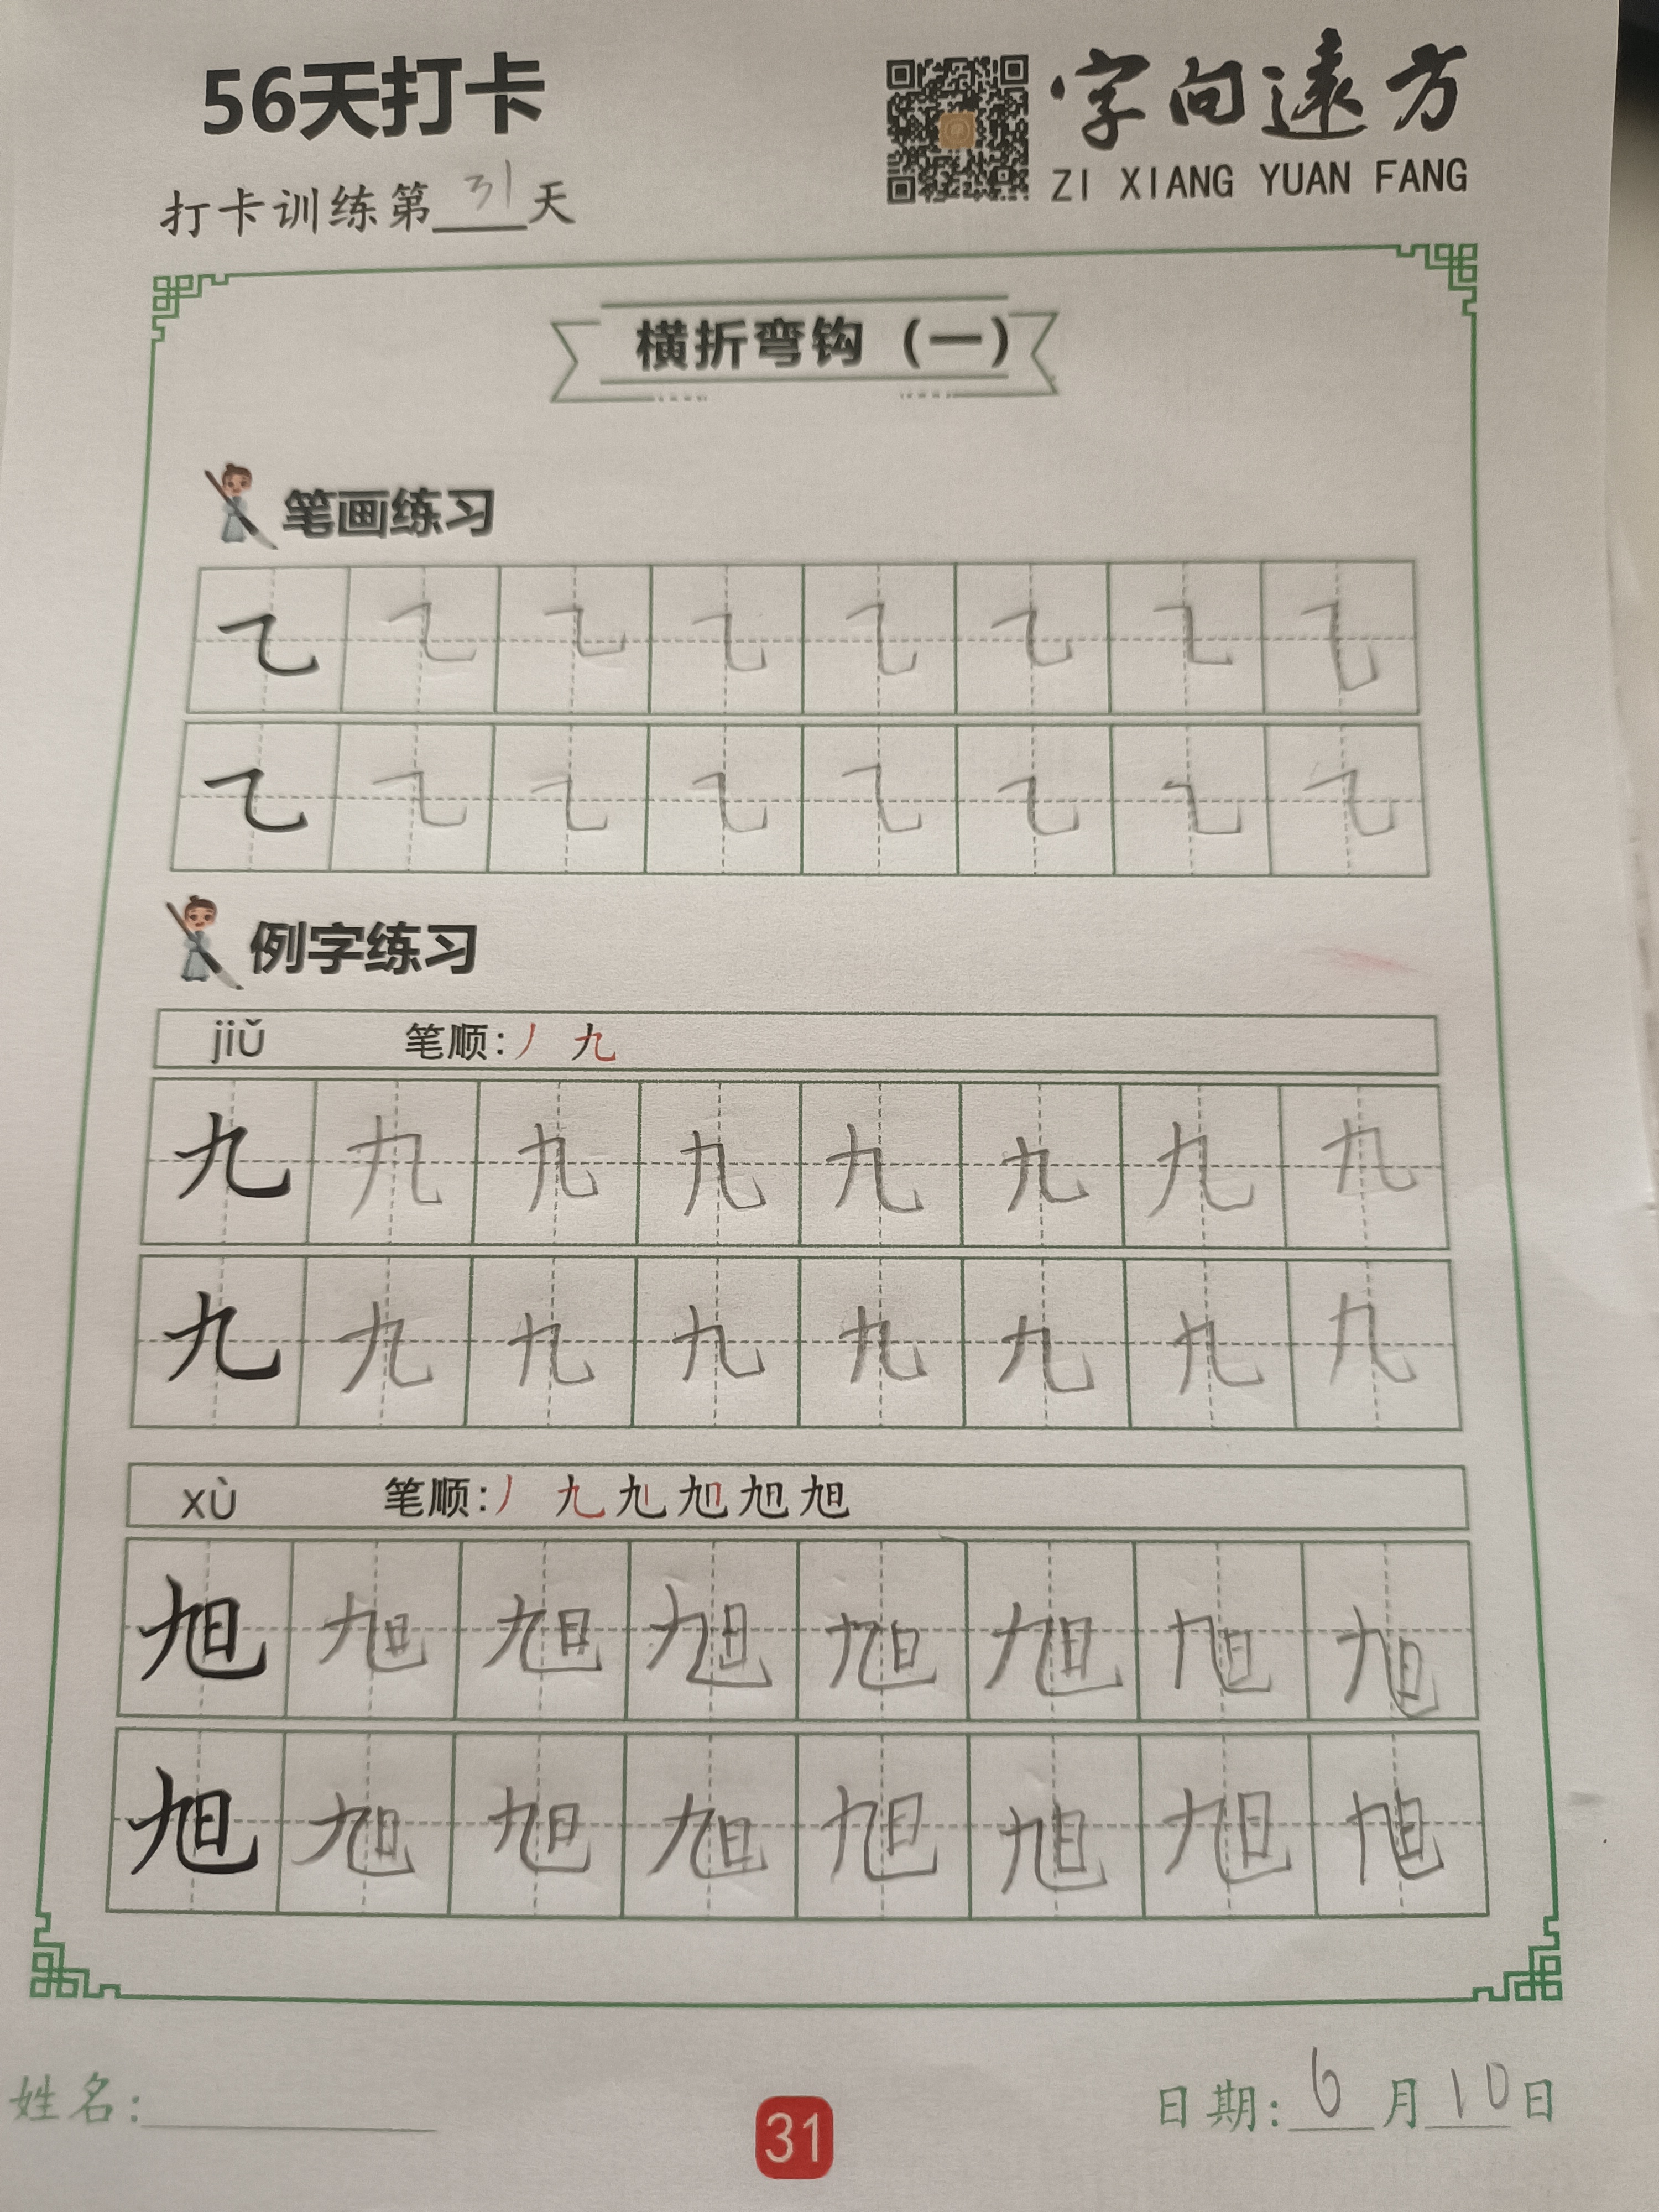 56天打卡
字向遠方
ZI XIANG YUAN FANG
打卡训练第31天
横折弯钩（一）
笔画练习
㇈ ㇈ ㇈ ㇈ ㇈ ㇈ ㇈ ㇈
㇈ ㇈ ㇈ ㇈ ㇈ ㇈ ㇈ ㇈
例字练习
jiǔ 笔顺:丿 九
九 九 九 九 九 九 九 九
九 九 九 九 九 九 九 九
xù 笔顺:丿 九 旭 旭 旭 旭
旭 旭 旭 旭 旭 旭 旭 旭
旭 旭 旭 旭 旭 旭 旭 旭
姓名:
31
日期:6月10日